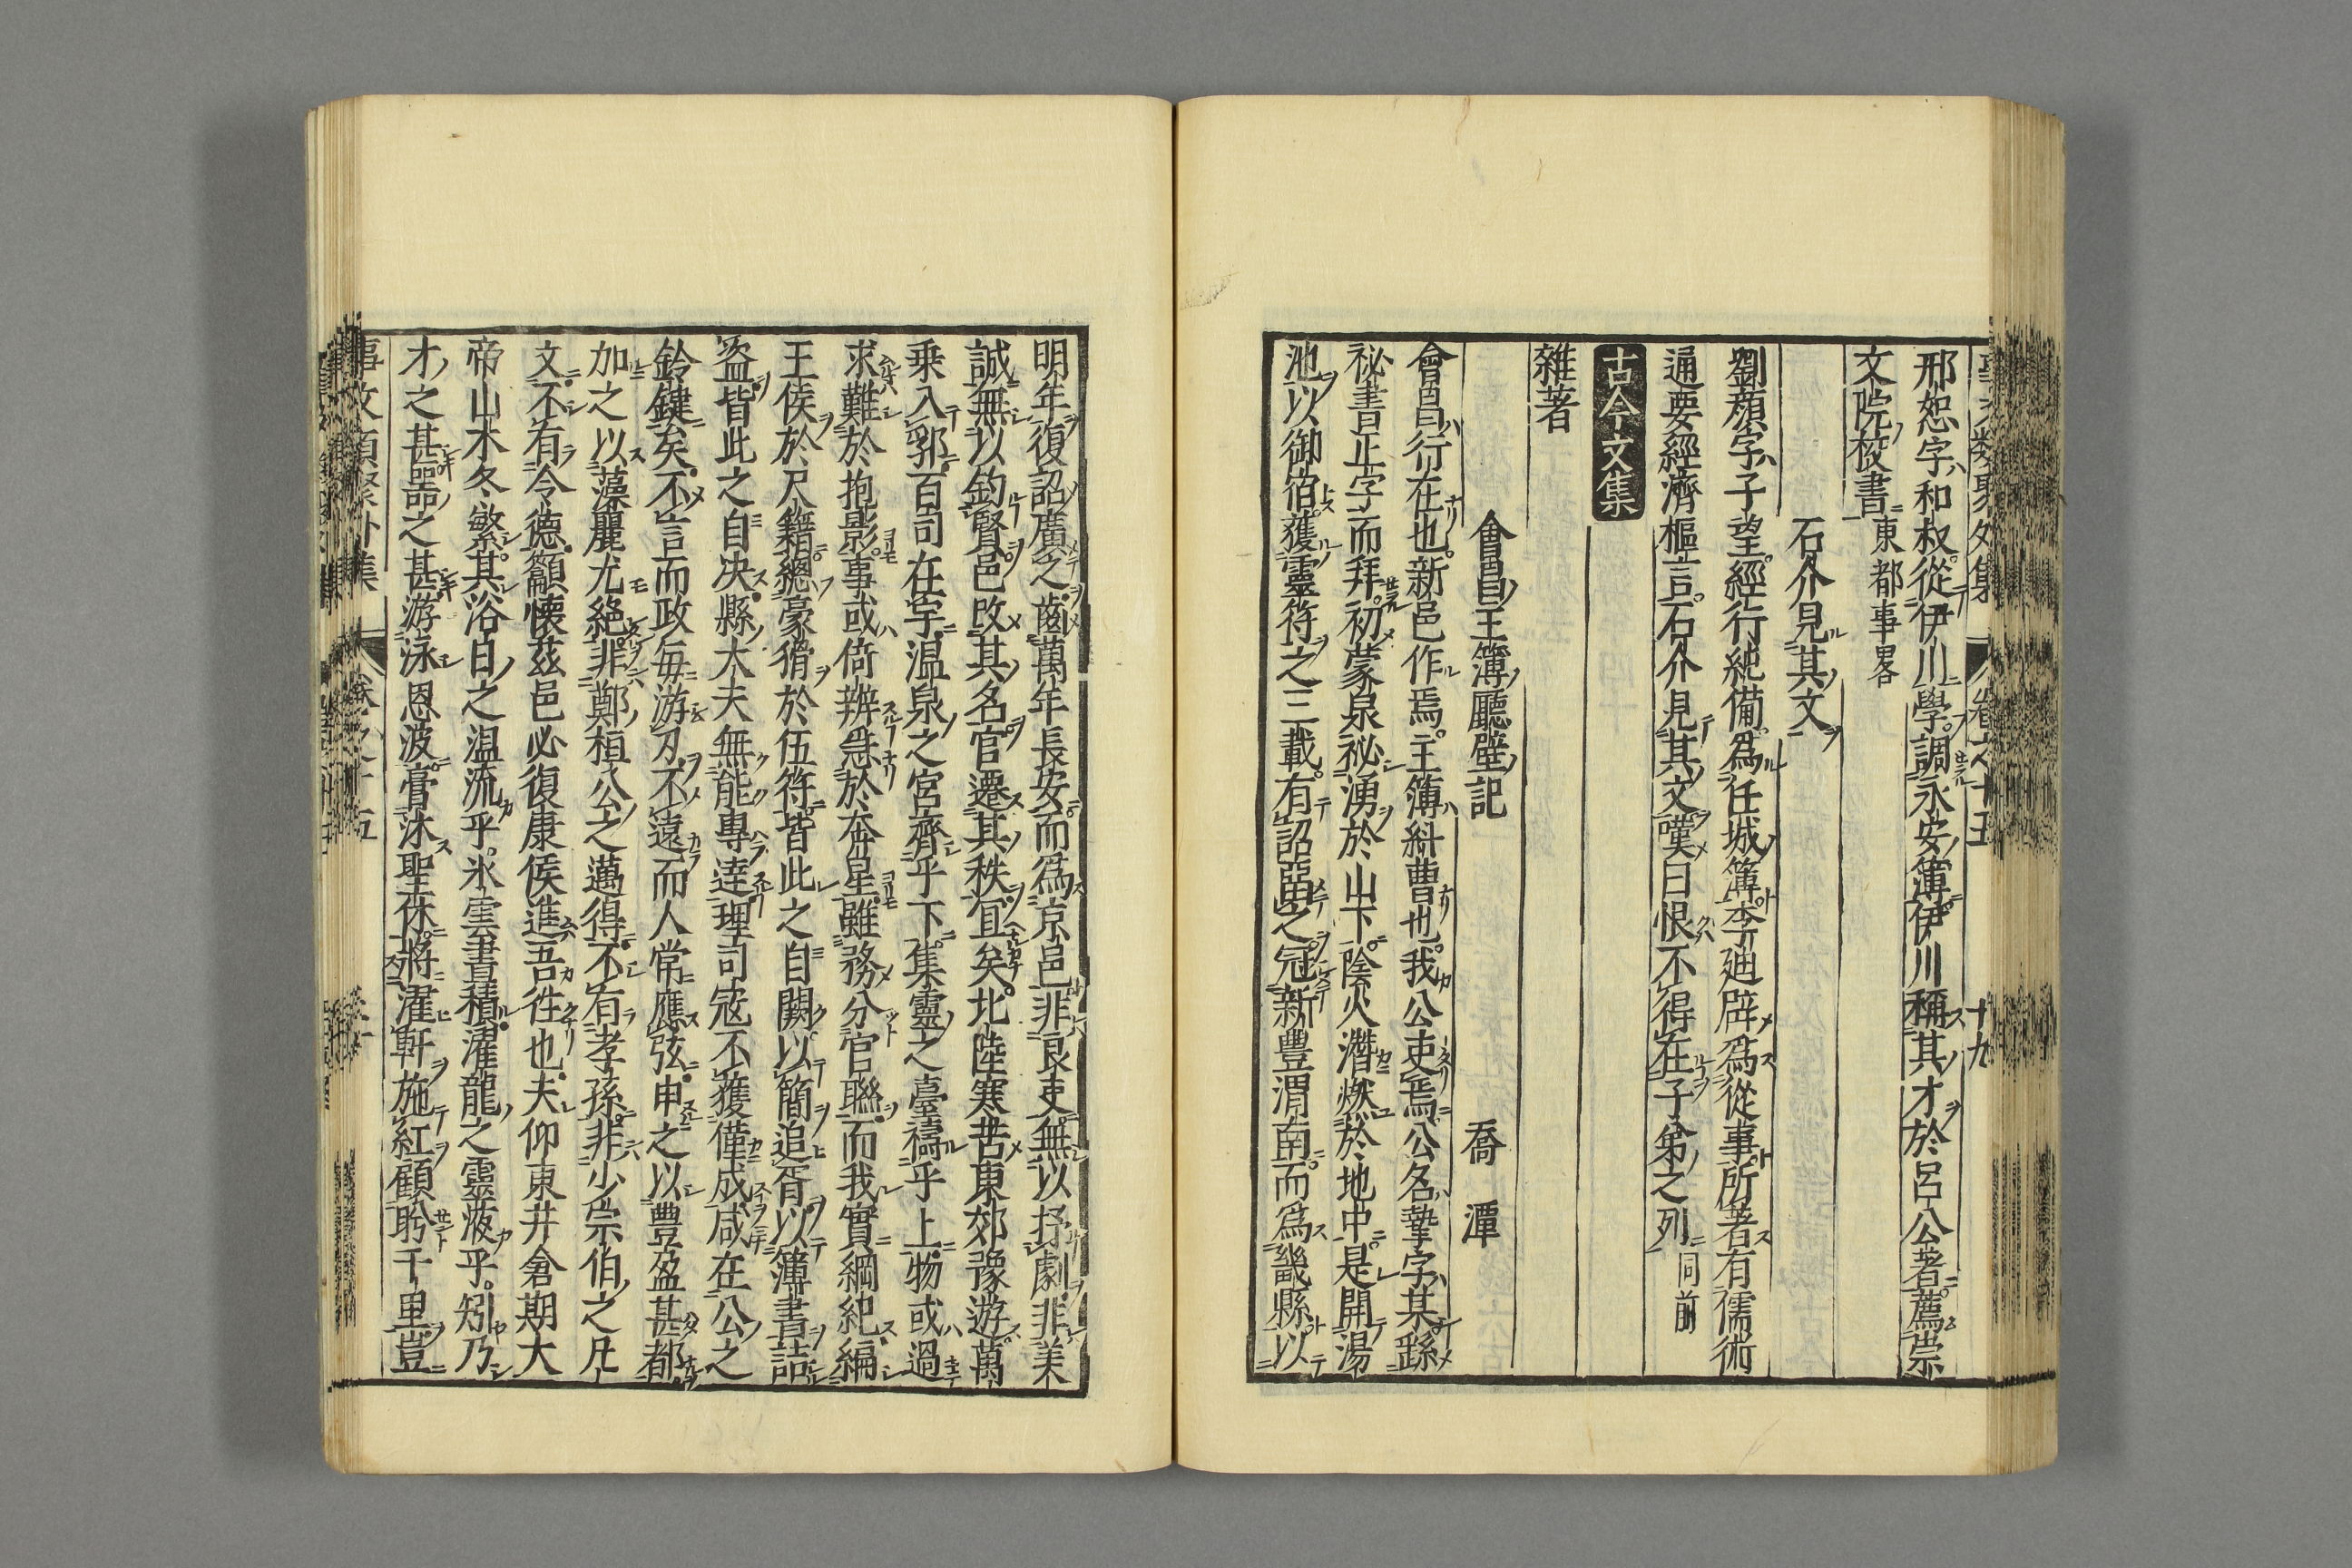 邢恕字和叔從伊川學調永安簿伊川稱其才於呂公著薦崇
文院校書東都事畧
石介見其文
劉顔字子望經行純備爲任城簿李廸辟爲從事所著有儒術
通要經濟樞言石介見其文嘆曰恨不得在子弟之列同前
古今文集
雜著
會昌主簿廳壁記 喬潭
會昌行在也新邑作焉主簿糾曹也我公吏焉公名摯字某繇
祕書正字而拜初蒙泉祕湧於山下陰火濳燃於地中是開湯
池以御宿獲靈符之三載有詔亞之冠新豊渭南而爲畿縣以
明年復詔廣之齒萬年長安而爲京邑非良吏無以抒劇非美
誠無以鈞賢邑改其名官遷其秩宜矣北陸寒苦東郊豫游萬
乗入郭百司在宇温泉之宮齊乎下集靈之臺禱乎上物或過
求難於抱影事或倚辨急於奔星雖務分官聯而我實綱紀編
王侯於尺籍總豪猾於伍符皆此之自闕以簡追胥以簿書詰
盗皆此之自决縣大夫無能專達理司寇不獲僅成咸在公之
鈴鍵矣不言而政毎游刃不遠而人常應弦申之以豊盈甚都
加之以藻麗尤絶非鄭桓公之邁得不有孝孫非少宗伯之凡
文不有令德籲懐茲邑必復康侯進吾徃也夫仰東井倉期大
帝山木冬繁其浴日之温流乎氷雲晝積濯龍之靈液乎矧乃
才之甚器之甚游泳恩波膏沐聖休將濯軒施紅顧盻千里豈